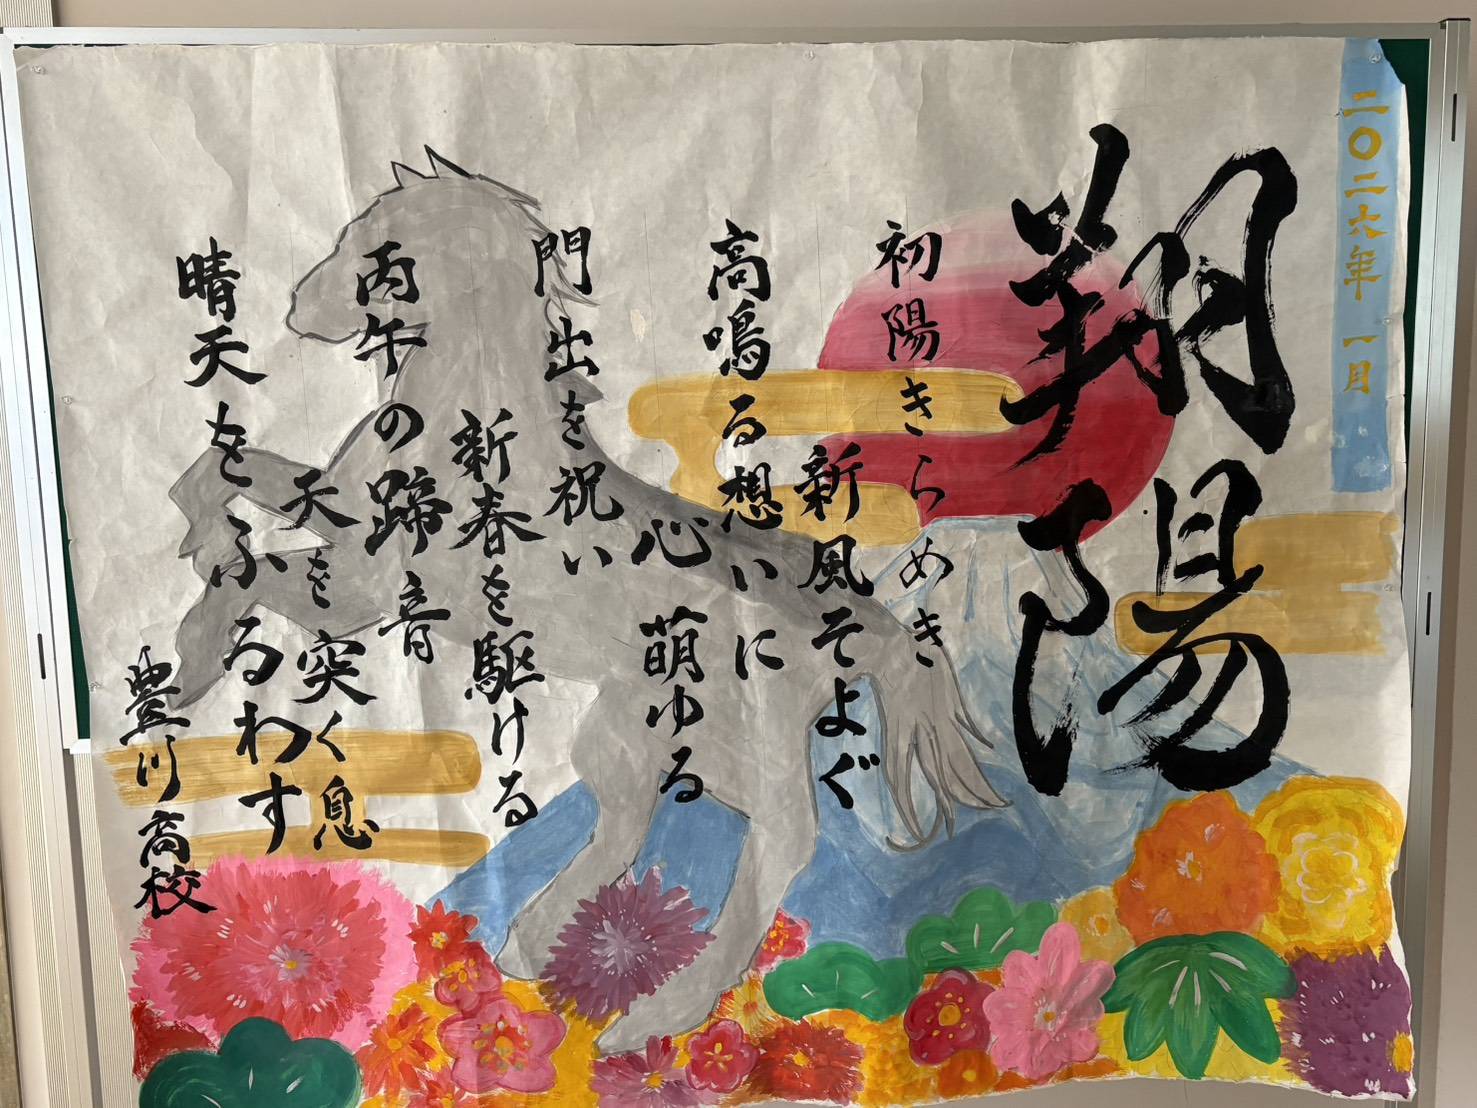 二〇二六年 一月
翔陽
初陽きらめき
新風そよぐ
高鳴る想いに
心 萌ゆる
門出を祝い
新春を駆ける
丙午の蹄音
天を突く息
晴天をふるわす
豊川高校